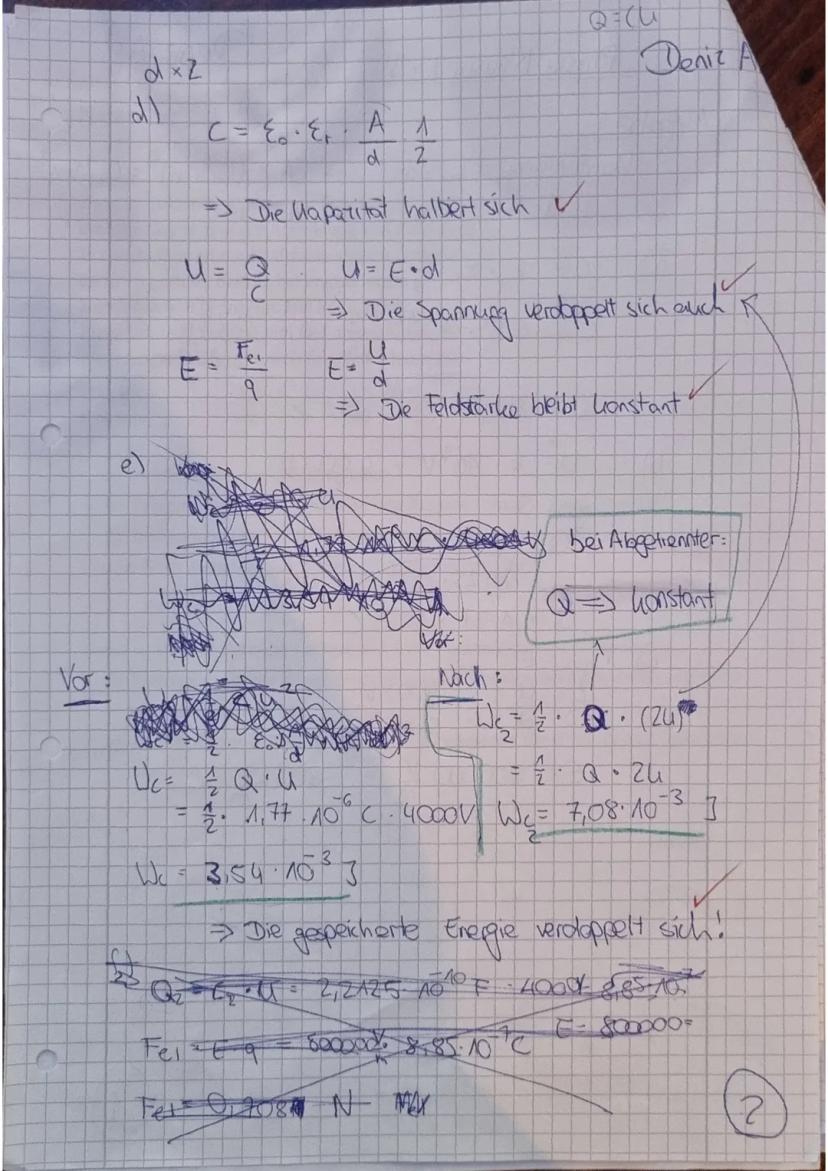 Q=CU
Deniz A
d×2
d)
C = ε₀ · εᵣ · A/d 1/2
=> Die Kapazität halbiert sich ✓
U = Q/C U = E·d
=> Die Spannung verdoppelt sich auch ✓
E = Fel/q E = U/d
=> Die Feldstärke bleibt konstant ✓
e)
bei Abgetrennter:
Q => konstant
Vor:
Vor: Nach:
Wc₂ = 1/2 · Q · (2U)
Wc = 1/2 Q · U = 1/2 · Q · 2U
= 1/2 · 1,77 · 10⁻⁶ C · 4000V Wc₂ = 7,08·10⁻³ J
Wc = 3,54 · 10⁻³ J
=> Die gespeicherte Energie verdoppelt sich! ✓
Q₂ = C₂ · U = 2,2125·10⁻¹⁰ F · 4000V 8,85·10⁻⁷
E = 800000
Fel = E q = 800000 · 8,85·10⁻⁷ C
Fel = 0,708 N
2